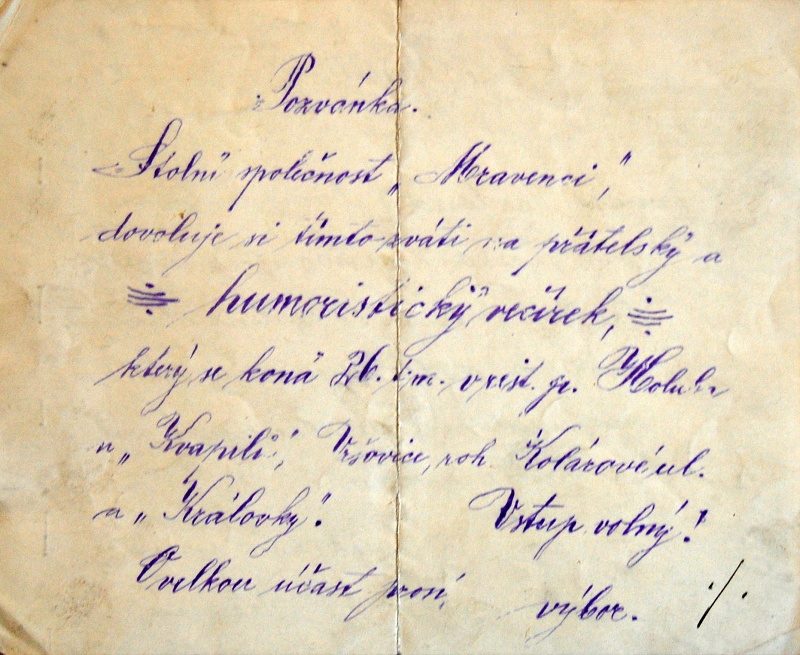 Pozvánka.
Stolní společnost „Mravenci",
dovoluje si tímto zváti na přátelský a
humoristický večírek,
který se koná 26. t.m. v rest. p. Holuba
u „Kvapilů", Vršovice, roh Kolárové ul.
a „Královky". Vstup volný!
O velkou účast prosí
výbor. ·/·